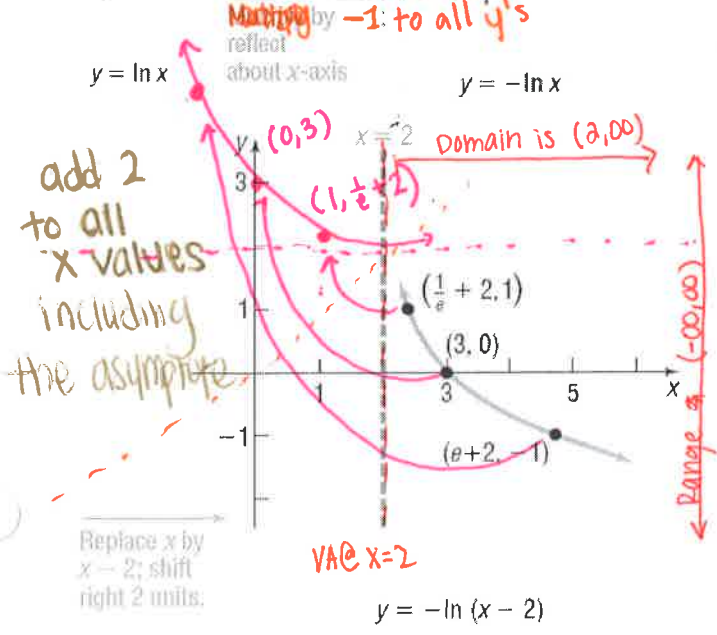 Multiply by -1: to all y's
reflect
about x-axis
y = ln x
y = −ln x
y
(0,3)
x = 2
Domain is (2,∞)
add 2
to all
x values
including
the asymptote
3
(1, 1/e + 2)
1
(1/e + 2, 1)
(3, 0)
1
3
5
x
−1
(e+2, −1)
Range is (-∞,∞)
Replace x by
x − 2; shift
right 2 units.
VA@ x=2
y = −ln (x − 2)